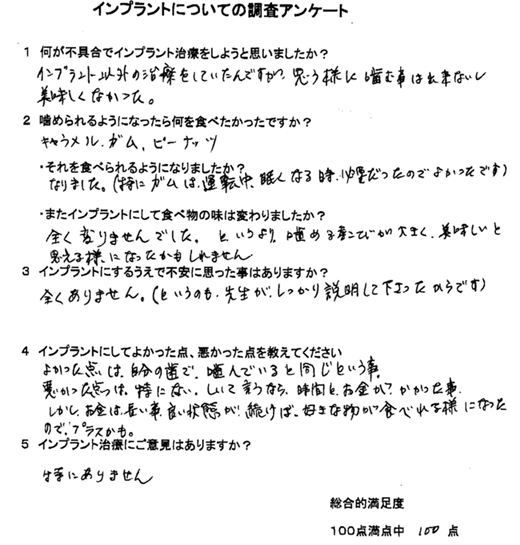 インプラントについての調査アンケート
1 何が不具合でインプラント治療をしようと思いましたか?
インプラント以外の治療をしていたんですが、思う様に噛む事は出来ないし
美味しくなかった。
2 噛められるようになったら何を食べたかったですか?
キャラメル、ガム、ピーナッツ
・それを食べられるようになりましたか?
なりました。(特にガムは、運転中、眠くなる時、必要だったのでよかったです)
・またインプラントにして食べ物の味は変わりましたか?
全く変りませんでした。というより、噛める喜びが大きく、美味しいと
思える様になったかもしれません
3 インプラントにするうえで不安に思った事はありますか?
全くありません。(というのも、先生が、しっかり説明して下さったからです)
4 インプラントにしてよかった点、悪かった点を教えてください
よかった点は、自分の歯で、噛んでいると同じという事。
悪かった点は、特にない。しいて言うなら、時間と、お金がかかった事。
しかし、お金は、長い事、良い状態が続けば、好きな物が食べれる様になった
ので、プラスかも。
5 インプラント治療にご意見はありますか?
特にありません
総合的満足度
100点満点中 100 点